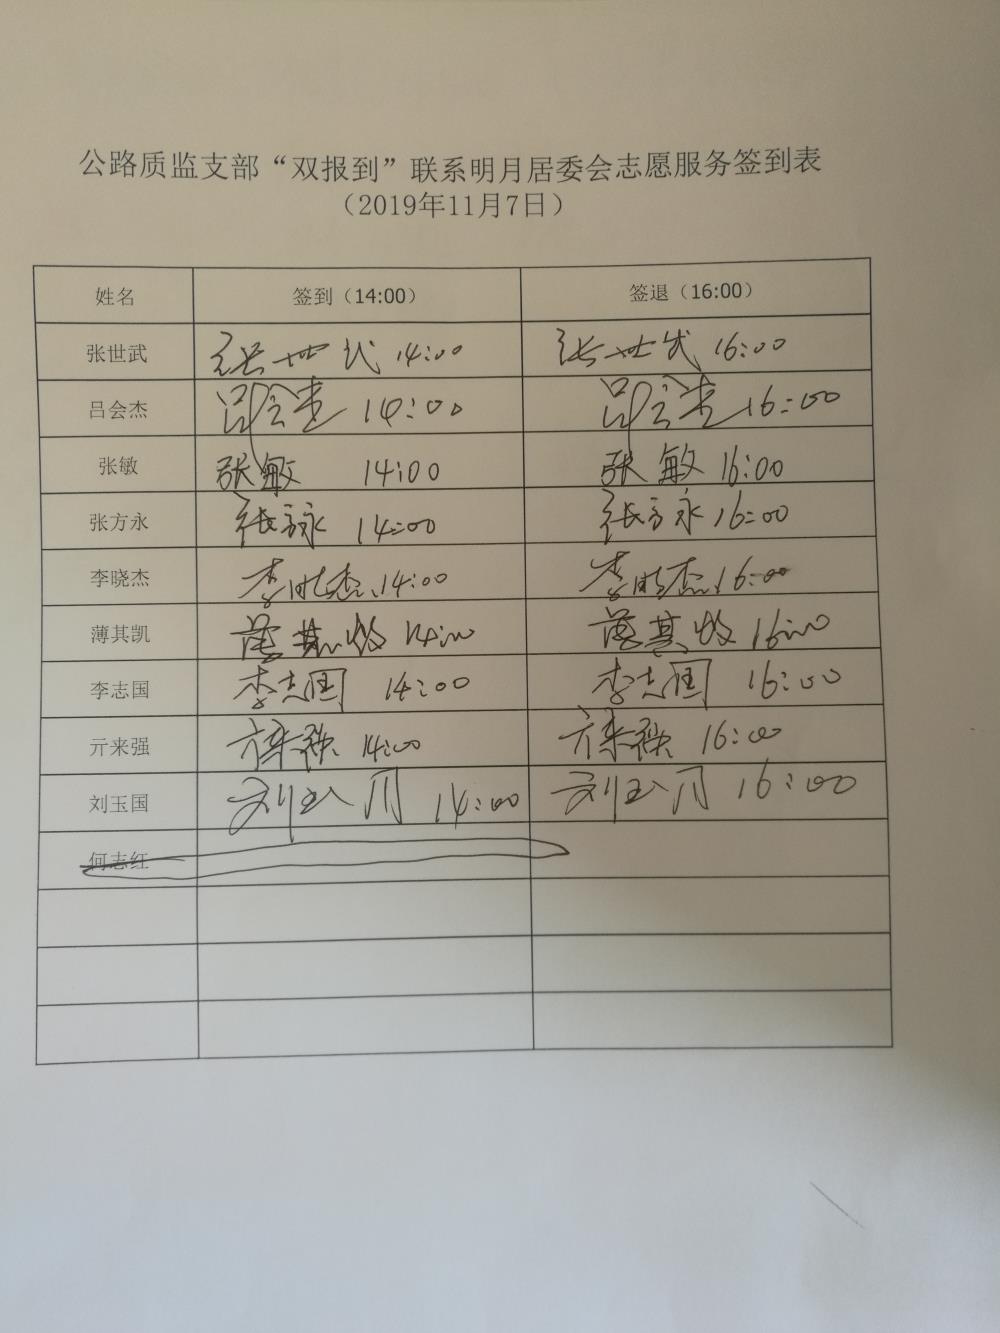 公路质监支部“双报到”联系明月居委会志愿服务签到表
（2019年11月7日）
姓名 签到（14:00） 签退（16:00）
张世武 张世武 14:00 张世武 16:00
吕会杰 吕会杰 14:00 吕会杰 16:00
张敏 张敏 14:00 张敏 16:00
张方永 张方永 14:00 张方永 16:00
李晓杰 李晓杰 14:00 李晓杰 16:00
薄其凯 薄其凯 14:00 薄其凯 16:00
李志国 李志国 14:00 李志国 16:00
亓来强 亓来强 14:00 亓来强 16:00
刘玉国 刘玉国 14:00 刘玉国 16:00
何志红